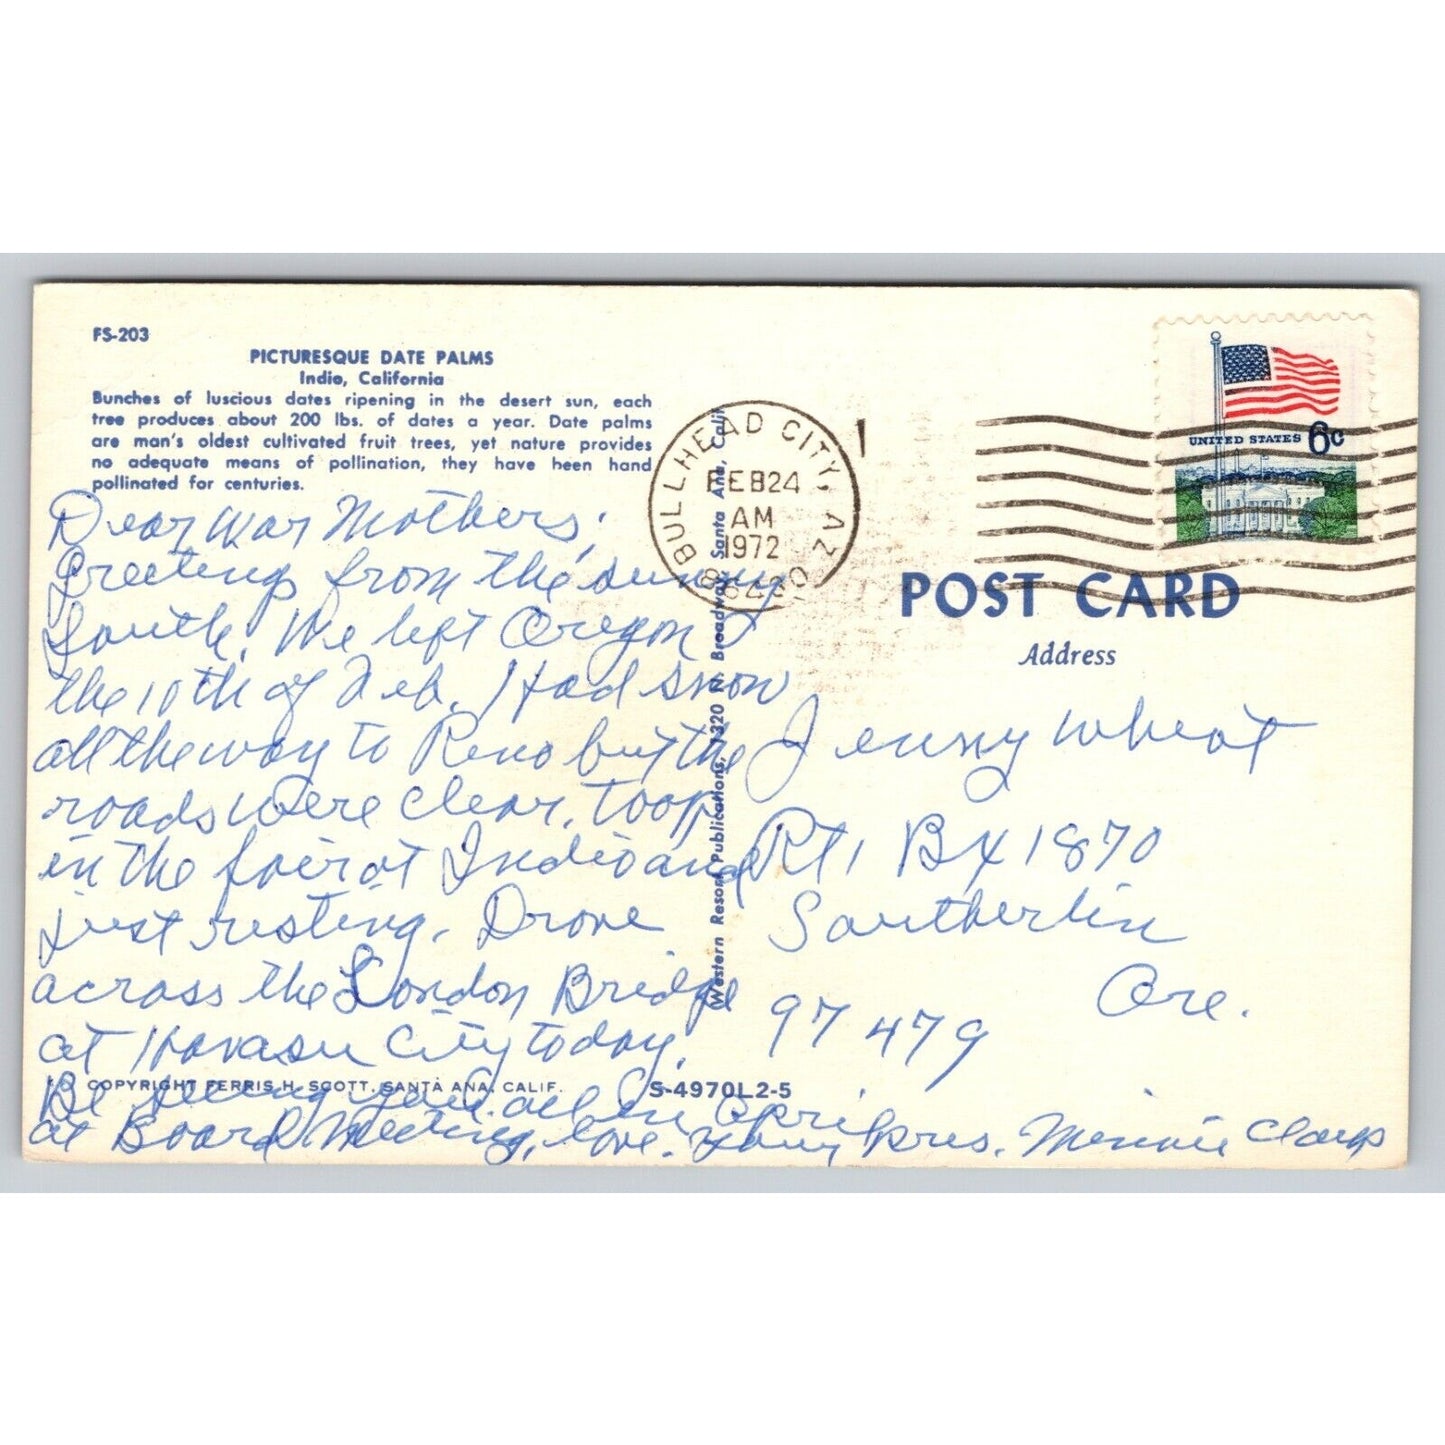 FS-203
PICTURESQUE DATE PALMS
Indio, California
Bunches of luscious dates ripening in the desert sun, each
tree produces about 200 lbs. of dates a year. Date palms
are man's oldest cultivated fruit trees, yet nature provides
no adequate means of pollination, they have been hand
pollinated for centuries.
Dear War Mothers;
Greetings from the sunny
South. We left Oregon
the 10th of Feb. Had snow
all the way to Reno but the
roads were clear. Took
in the fair at Indio and
just resting. Drove
across the London Bridge
at Havasu City today.
Be seeing you all in April
at Board Meeting. Love. Your pres. Minnie Clark
COPYRIGHT FERRIS H. SCOTT, SANTA ANA, CALIF.
S-4970L2-5
Western Resort Publications, 1320 N. Broadway, Santa Ana, Calif
BULLHEAD CITY, AZ
FEB 24
AM
1972
86430
UNITED STATES 6c
POST CARD
Address
Jenny Wheat
Rt 1 Bx 1870
Sautherlin
Ore.
97479